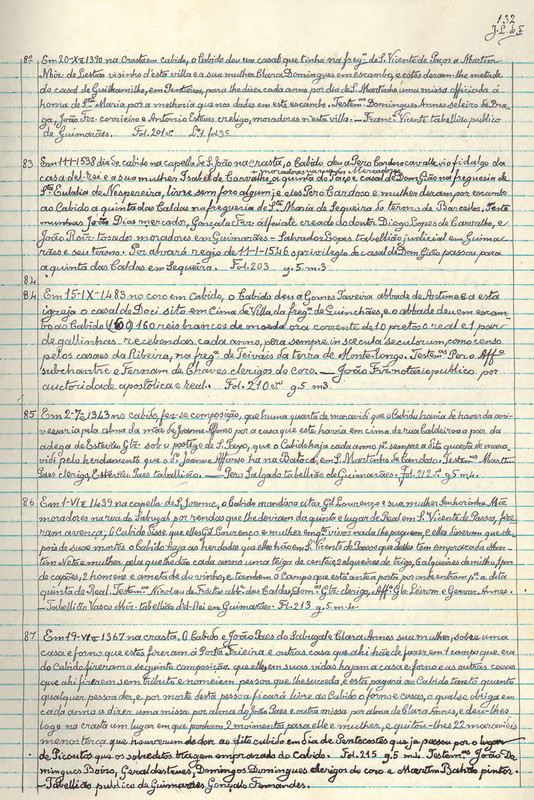 132
J. L. de F.
82 Em 20-X-1390 na Crasta em cabido, o Cabido deu um casal que tinha na freg.ª de S. Vicente de Paços a Martim
de Lestas visinho d'esta villa e a sua mulher Clara Domingues em escambo, e estes deram-lhe metade
do casal de Guilhamilhe, em Penteeiros, para lhe dizer cada anno por dia de S. Martinho uma missa officiada á
honra de S.ta Maria por a melhoria que nos dades em este escambo. Testem.as Domingues Annes seleiro de Bra-
ga, João Frz. corrieiro e Antonio Esteves creligo, moradores n'esta villa - Franc.º Vicente tabellião publico
de Guimarães. Fol. 201
83 Em 11-1-1538 dia de cabido na capella de S. João na crasta, o Cabido deu a Pero Cardoso cavalleiro fidalgo da
casa del-rei e a sua mulher Isabel de Carvalho, moradores na
a quinta do Paço e Casal de Dom Gião na freguesia de
S.ta Eulalia de Nespereira, livre sem foro algum, e eles Pero Cardoso e mulher deram por escambo
ao Cabido a quinta das Caldas na freguesia de S.ta Maria de Sequeira do termo de Barcellos. Teste
munhas João Dias mercador, Gonçalo Frz alfaiate creado do doutor Diogo Lopes de Carvalho, e
João Roiz tosador moradores em Guimarães - Salvador Lopes tabellião judicial em Guima-
rães e seu termo. Por alvará regio de 11-1-1546 o privilegio do casal de Dom Gião passou para
a quinta das Caldas em Sequeira. Fol. 203 g. 5 m. 3
84
84 Em 15-IX-1483 no coro em Cabido, o Cabido deu a Gomes Taveira abbade de Antime e a esta
igreja o casal do Doci sito em Cima de Villa da freg.ª de Guinchães, e o abbade deu em escam-
bo ao Cabido (160) 160 reis brancos de moeda ora corrente de 10 pretos o real e 1 par
de gallinhas recebondas, cada anno, para sempre in secula seculorum, como censo
pelos casaes da Ribeira, na freg.ª de Teivais da terra de Monte-longo. Testem.as Pero Aff.º
subchantre e Fernam de Chaves clerigos do coro. - João Frz notario publico por
auctoridade apostolica e real. Fol. 210 vº g. 5 m. 3.
85 Em 2-7-1343 no cabido, fez-se composição, que huma quarta de maravidi que o Cabido havia de haver da ani-
vessaria pela alma da mãe de Joanne Affonso por a casa que esta havia em cima de rua Caldeiroa a par da
adega de Estevão Glz. sob o postigo de S. Payo, que o Cabido haja cada anno p.ª sempre a dita quarta de mara-
vidi pelo herdamento que o d.º Joanne Affonso ha na Batoca, em S. Martinho de Candoso. Testem.as Martim
Paes clerigo, Estevão Paes taballião. - Pero Salgado tabellião de Guimarães. Fol. 212 vº g. 5 m. 4.
86 Em 1-VI-1439 na capella de S. Joanne, o Cabido mandára citar Gil Lourenço e sua mulher Senhorinha Miz
moradores na rua do Sabugal por rendas que lhe deviam da quinta e lugar de Real em S. Vicente de Passos, fize-
ram avença, o Cabido disse que elles Gil Lourenço e mulher emq.to vivos nada lhe paguem, e elles disseram que de-
pois de suas mortes o Cabido haja as herdades que elles hão em S. Vicente de Passos que delles tem emprazada Mar-
tim Neto e mulher pela que lhe dão cada anno uma teiga de centeio, 2 alqueires de trigo, 6 alqueires de milho, 1 par
de capões, 2 homens e ametade do vinho; e tambem o Campo que está ante a porta por onde entram p.ª a dita
quinta do Real. Testem.as Nicolau de Freitas abb.e das Caldas, Dom.os Glz clerigo, Aff.º Glz Leirom e Gervaz Annes.
- Taballião Vasco Miz tabellião del-Rei em Guimarães. Fl. 213 g. 5 m. 4.
87 Em 19-VI-1367 na crasta, o Cabido e João Paes do Sabugal e Clara Annes sua mulher, sobre uma
casa e forno que estes fizeram á Porta Freira e outras casa que ahi hão de fazer em 1 campo que era
do Cabido fizeram a seguinte composição, que elles em suas vidas hajam a casa e forno e as outras casas
que ahi fizerem sem tributo e nomeiem pessoa que lhe succeda, e esta pagará ao Cabido tanto quanto
qualquer pessoa der, e por morte desta pessoa ficará livre ao Cabido o forno e casas, o qual se obriga em
cada anno a dizer uma missa por alma do João Paes e outra missa por alma de Clara Annes, e deu-lhes
logo na crasta um lugar em que ponham 2 moimentos para elle e mulher, e quitou-lhes 22 maravidiis
menos terça que houverem de dar ao dito cabido em dia de Pentecostes que ja passou por o lugar
de Picoutos que os sobreditos trazem emprazado do Cabido. Fol. 215 g. 5 m. 4. Testem.as João Do-
mingues Boino, Geral das teves, Domingos Domingues clerigos do coro e Martim Bahião pintor.
- Tabellião publico de Guimarães Gonçalo Fernandes.